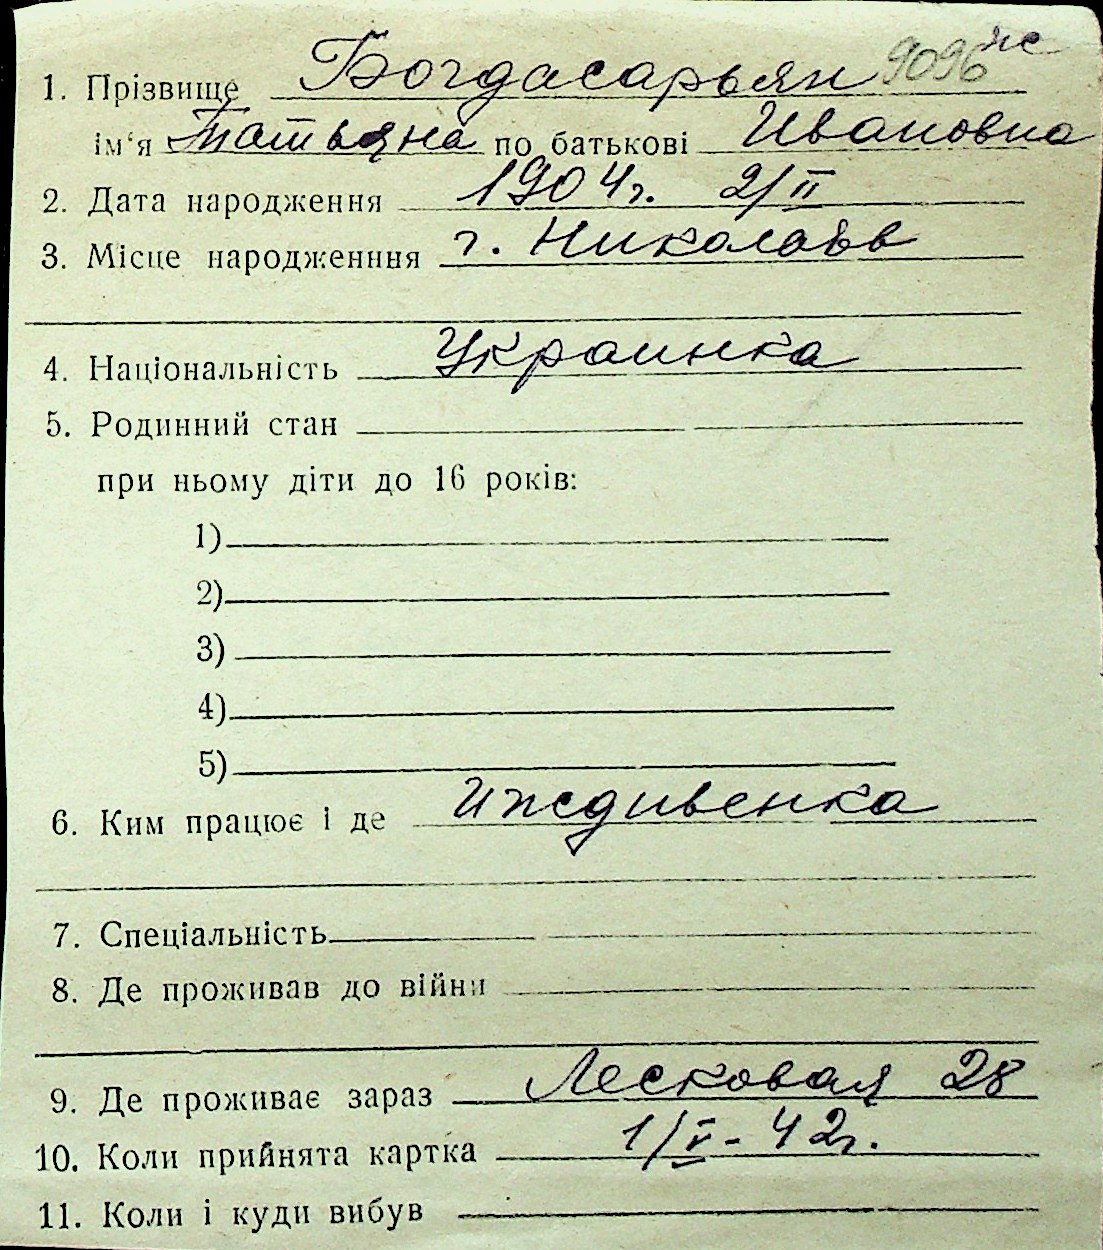 1. Прізвище Богдасарьян 9096 пс
ім'я Татьяна по батькові Ивановна
2. Дата народження 1904г. 2/II
3. Місце народженння г. Николаев
4. Національність Украинка
5. Родинний стан
при ньому діти до 16 років:
1)
2)
3)
4)
5)
6. Ким працює і де Иждивенка
7. Спеціальність
8. Де проживав до війни
9. Де проживає зараз Лесковая 28
10. Коли прийнята картка 1/V-42г.
11. Коли і куди вибув